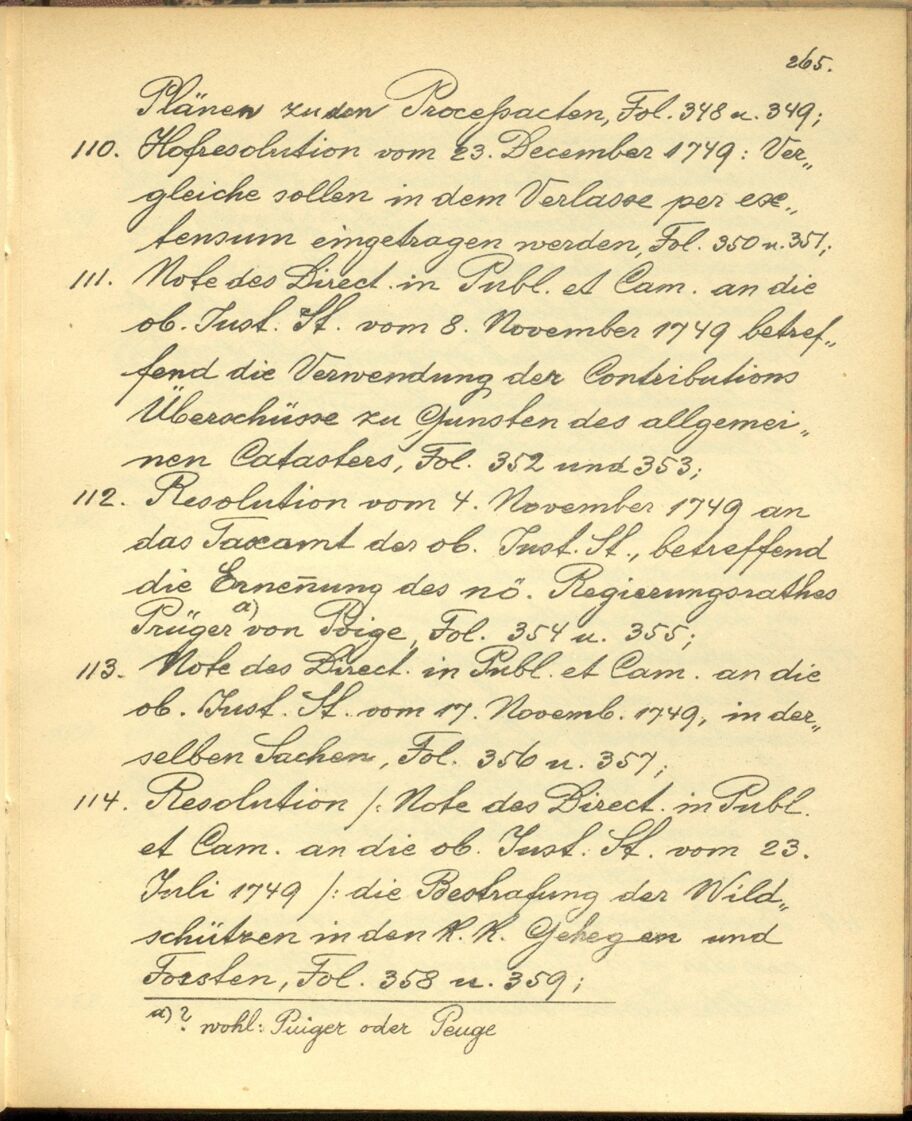 265.
Plänen zu den Processacten, Fol. 348 u. 349;
110. Hofresolution vom 23. December 1749: Ver„
gleiche sollen in dem Verlasse per ex„
tensum eingetragen werden, Fol. 350 u. 351;
111. Note des Direct. in Publ. et Cam. an die
ob. Just. St. vom 8. November 1749 betref„
fend die Verwendung der Contributions
Überschüsse zu Gunsten des allgemei„
nen Catasters, Fol. 352 und 353;
112. Resolution vom 4. November 1749 an
das Taxamt der ob. Just. St., betreffend
die Ernen̄ung des nö. Regierungsrathes
Prüger a) von Poige, Fol. 354 u. 355;
113. Note des Direct. in Publ. et Cam. an die
ob. Just. St. vom 17. Novemb. 1749, in der„
selben Sachen, Fol. 356 u. 357;
114. Resolution /: Note des Direct. in Publ.
et Cam. an die ob. Just. St. vom 23.
Juli 1749 /: die Bestrafung der Wild„
schützen in den K. K. Gehegen und
Forsten, Fol. 358 u. 359;
a) ? wohl: Püiger oder Peuge